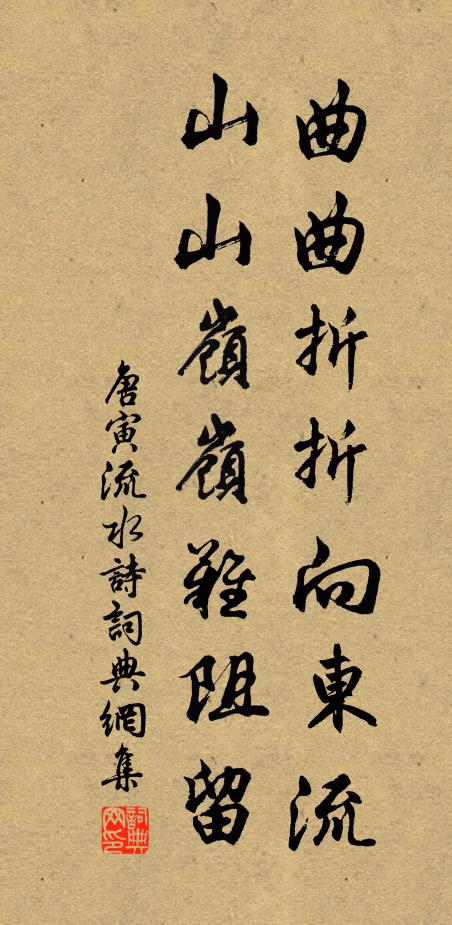 曲曲折折向東流
山山嶺嶺難阻留
唐寅流水詩詞典網集
詞典網印